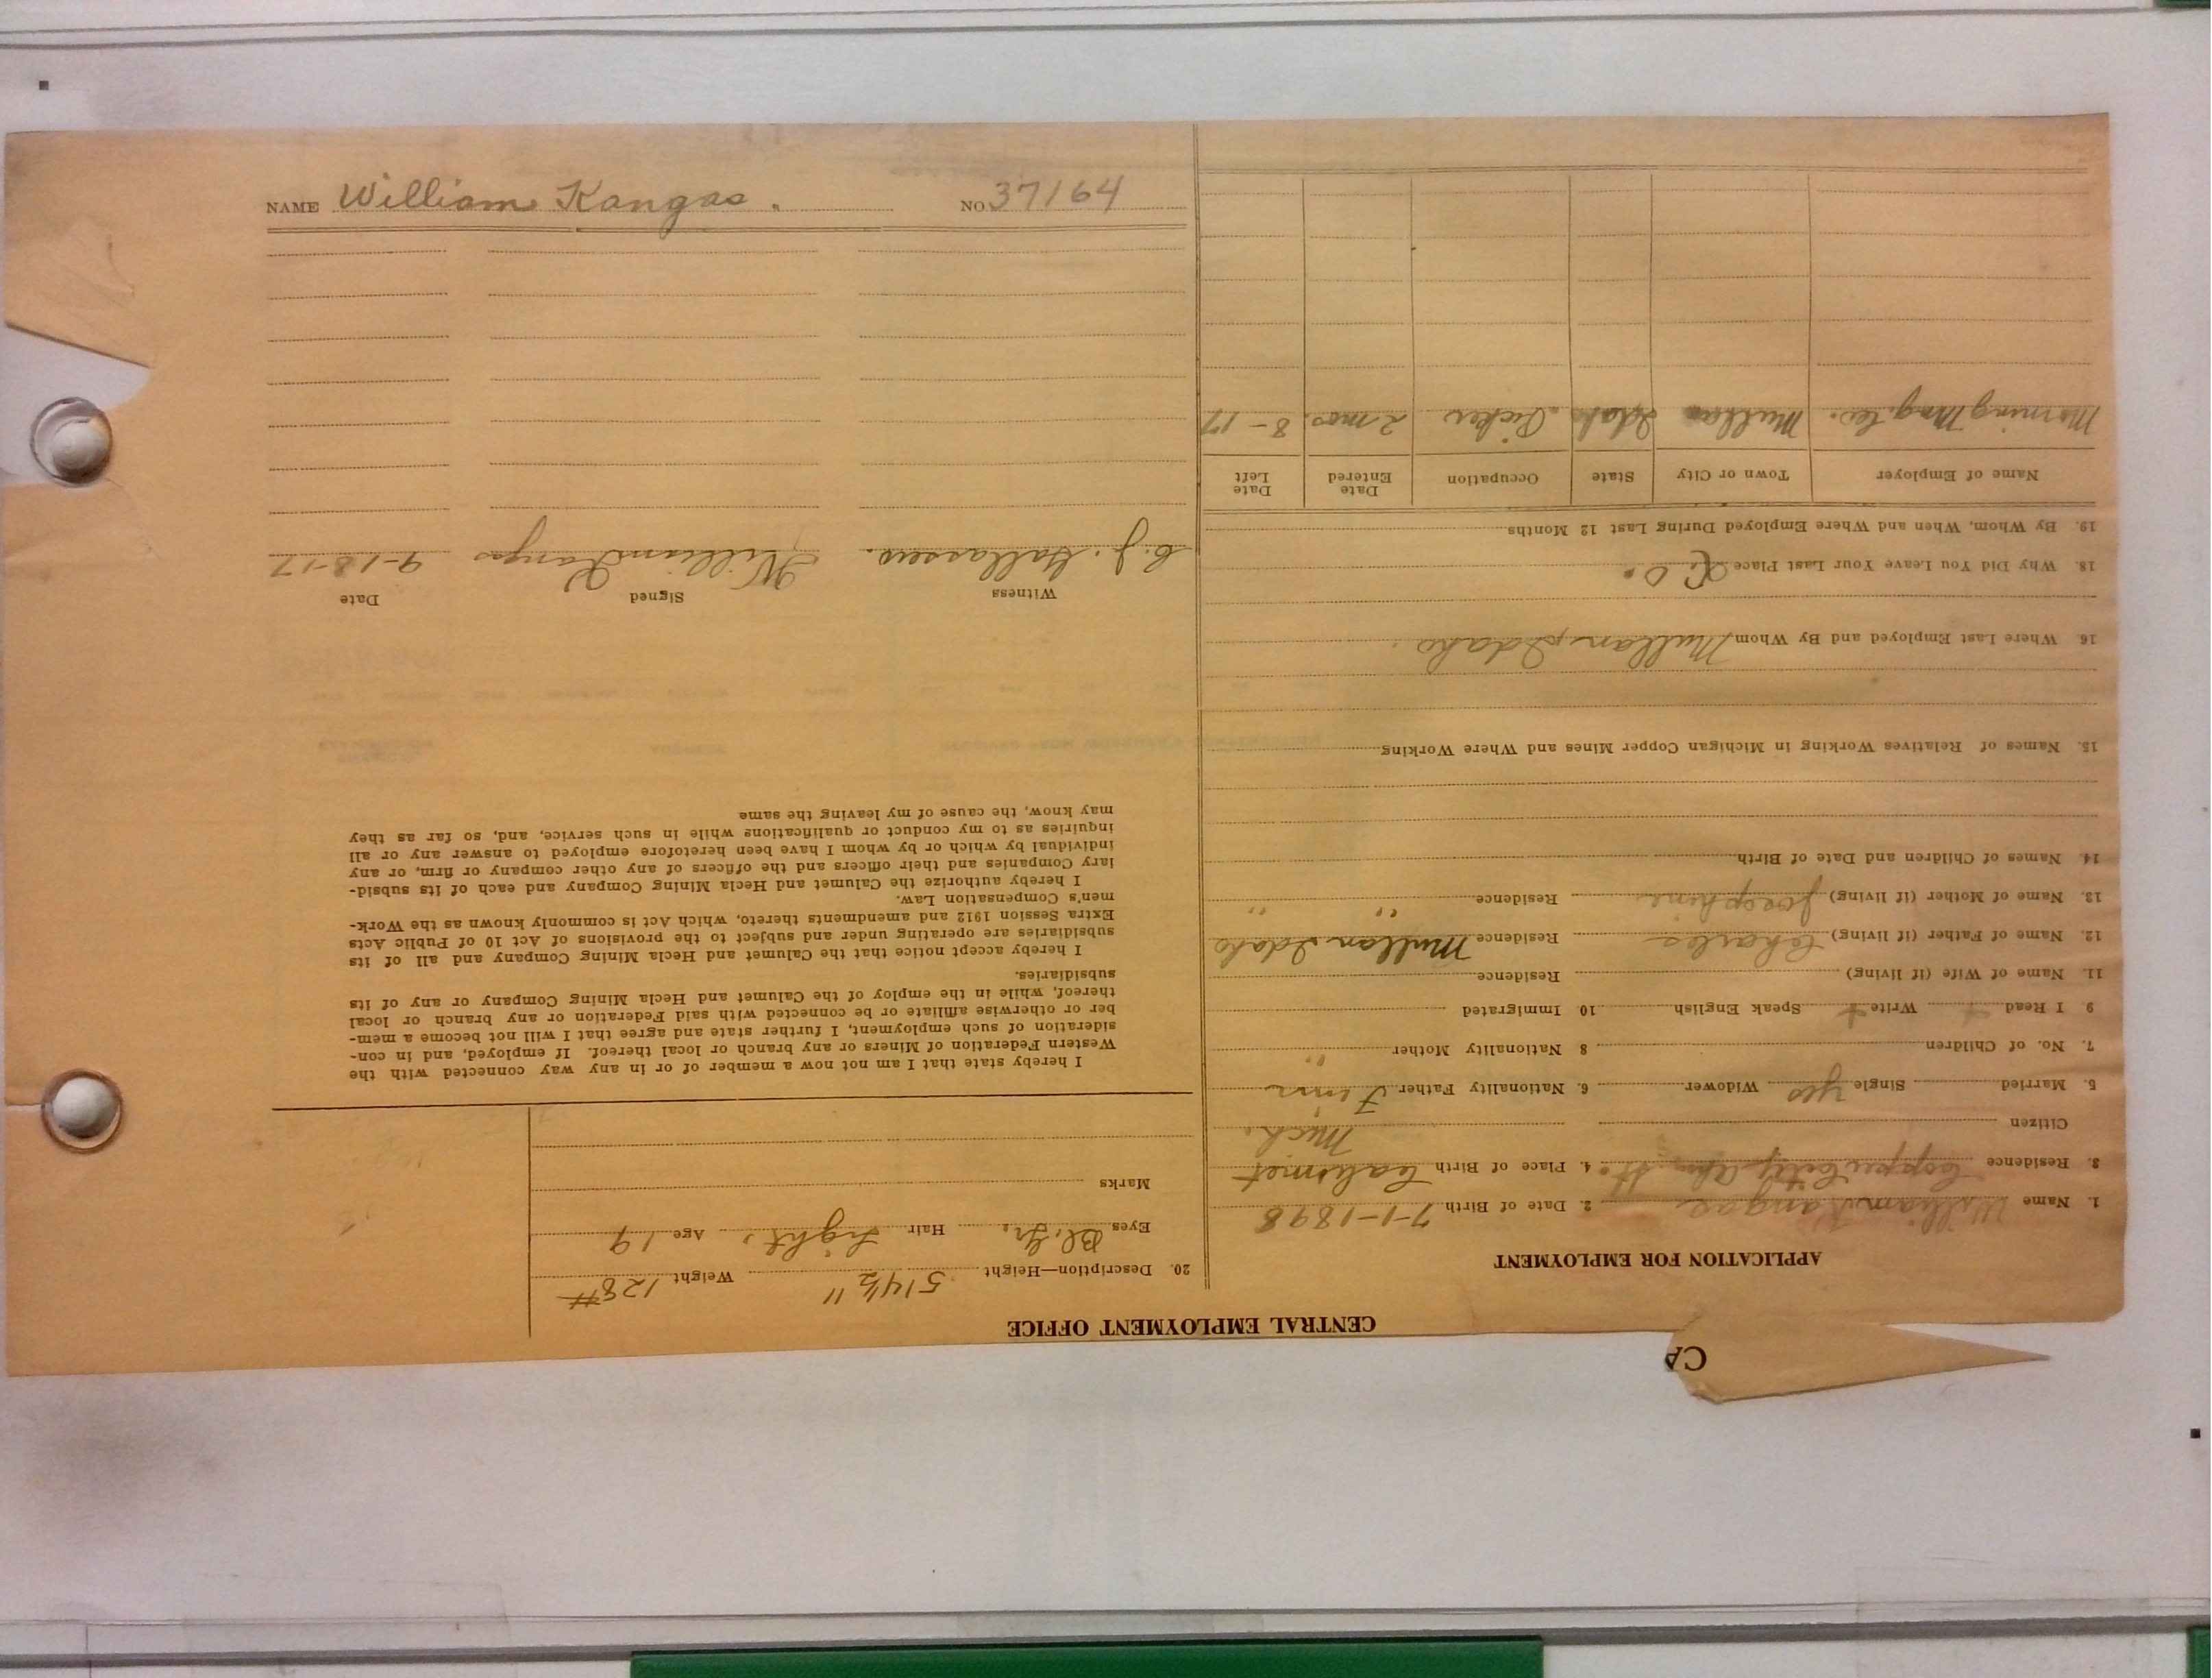 NAME William Kangas. NO. 37164
CA
CENTRAL EMPLOYMENT OFFICE
APPLICATION FOR EMPLOYMENT
1. Name William Kangas 2. Date of Birth 7-1-1898
3. Residence Copper City 4. Place of Birth Calumet
Citizen Mich.
5. Married Single yes Widower 6. Nationality Father Finn
7. No. of Children 8 Nationality Mother "
9. I Read + Write + Speak English 10. Immigrated
11. Name of Wife (if living) Residence
12. Name of Father (if living) Charles Residence Mullan Idaho
13. Name of Mother (if living) Josephine Residence " "
14. Names of Children and Date of Birth
15. Names of Relatives Working in Michigan Copper Mines and Where Working
16. Where Last Employed and By Whom Mullan, Idaho.
18. Why Did You Leave Your Last Place
19. By Whom, When and Where Employed During Last 12 Months
Name of Employer Town or City State Occupation Date Entered Date Left
Morning Mng. Co. Mullan Idaho Picker 2 mos. 8-17
20. Description—Height 5' 4½" Weight 128#
Eyes Bl. Gr. Hair Light. Age 19
Marks
I hereby state that I am not now a member of or in any way connected with the
Western Federation of Miners or any branch or local thereof. If employed, and in con-
sideration of such employment, I further state and agree that I will not become a mem-
ber or otherwise affiliate or be connected with said Federation or any branch or local
thereof, while in the employ of the Calumet and Hecla Mining Company or any of its
subsidiaries.
I hereby accept notice that the Calumet and Hecla Mining Company and all of its
subsidiaries are operating under and subject to the provisions of Act 10 of Public Acts
Extra Session 1912 and amendments thereto, which Act is commonly known as the Work-
men's Compensation Law.
I hereby authorize the Calumet and Hecla Mining Company and each of its subsid-
iary Companies and their officers and the officers of any other company or firm, or any
individual by which or by whom I have been heretofore employed to answer any or all
inquiries as to my conduct or qualifications while in such service, and, so far as they
may know, the cause of my leaving the same
Witness Signed Date
C. J. William Kangas 9-18-17